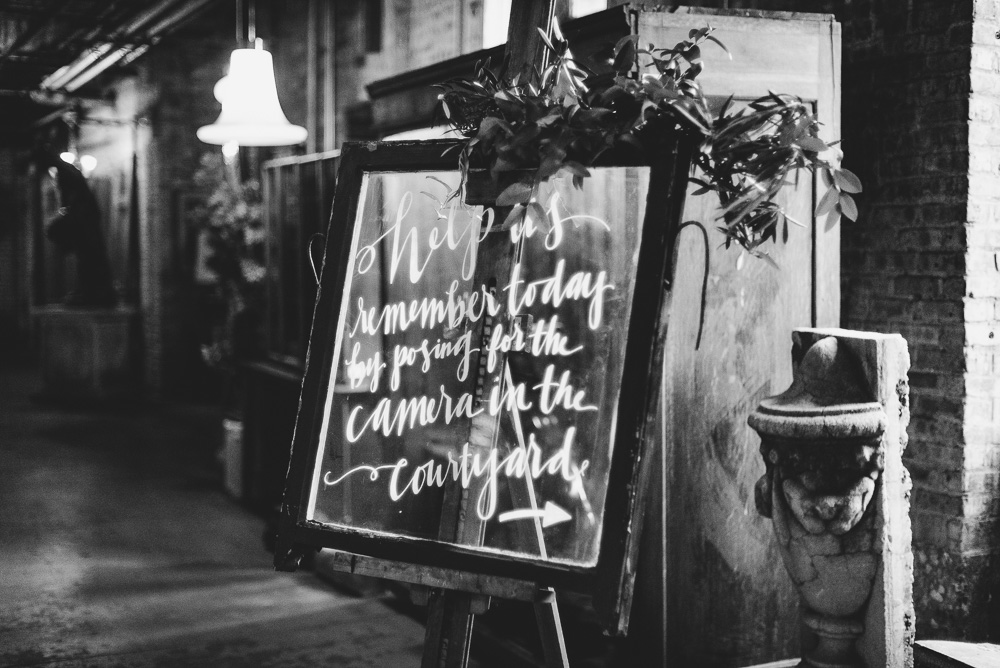 help us
remember today
by posing for the
camera in the
courtyard